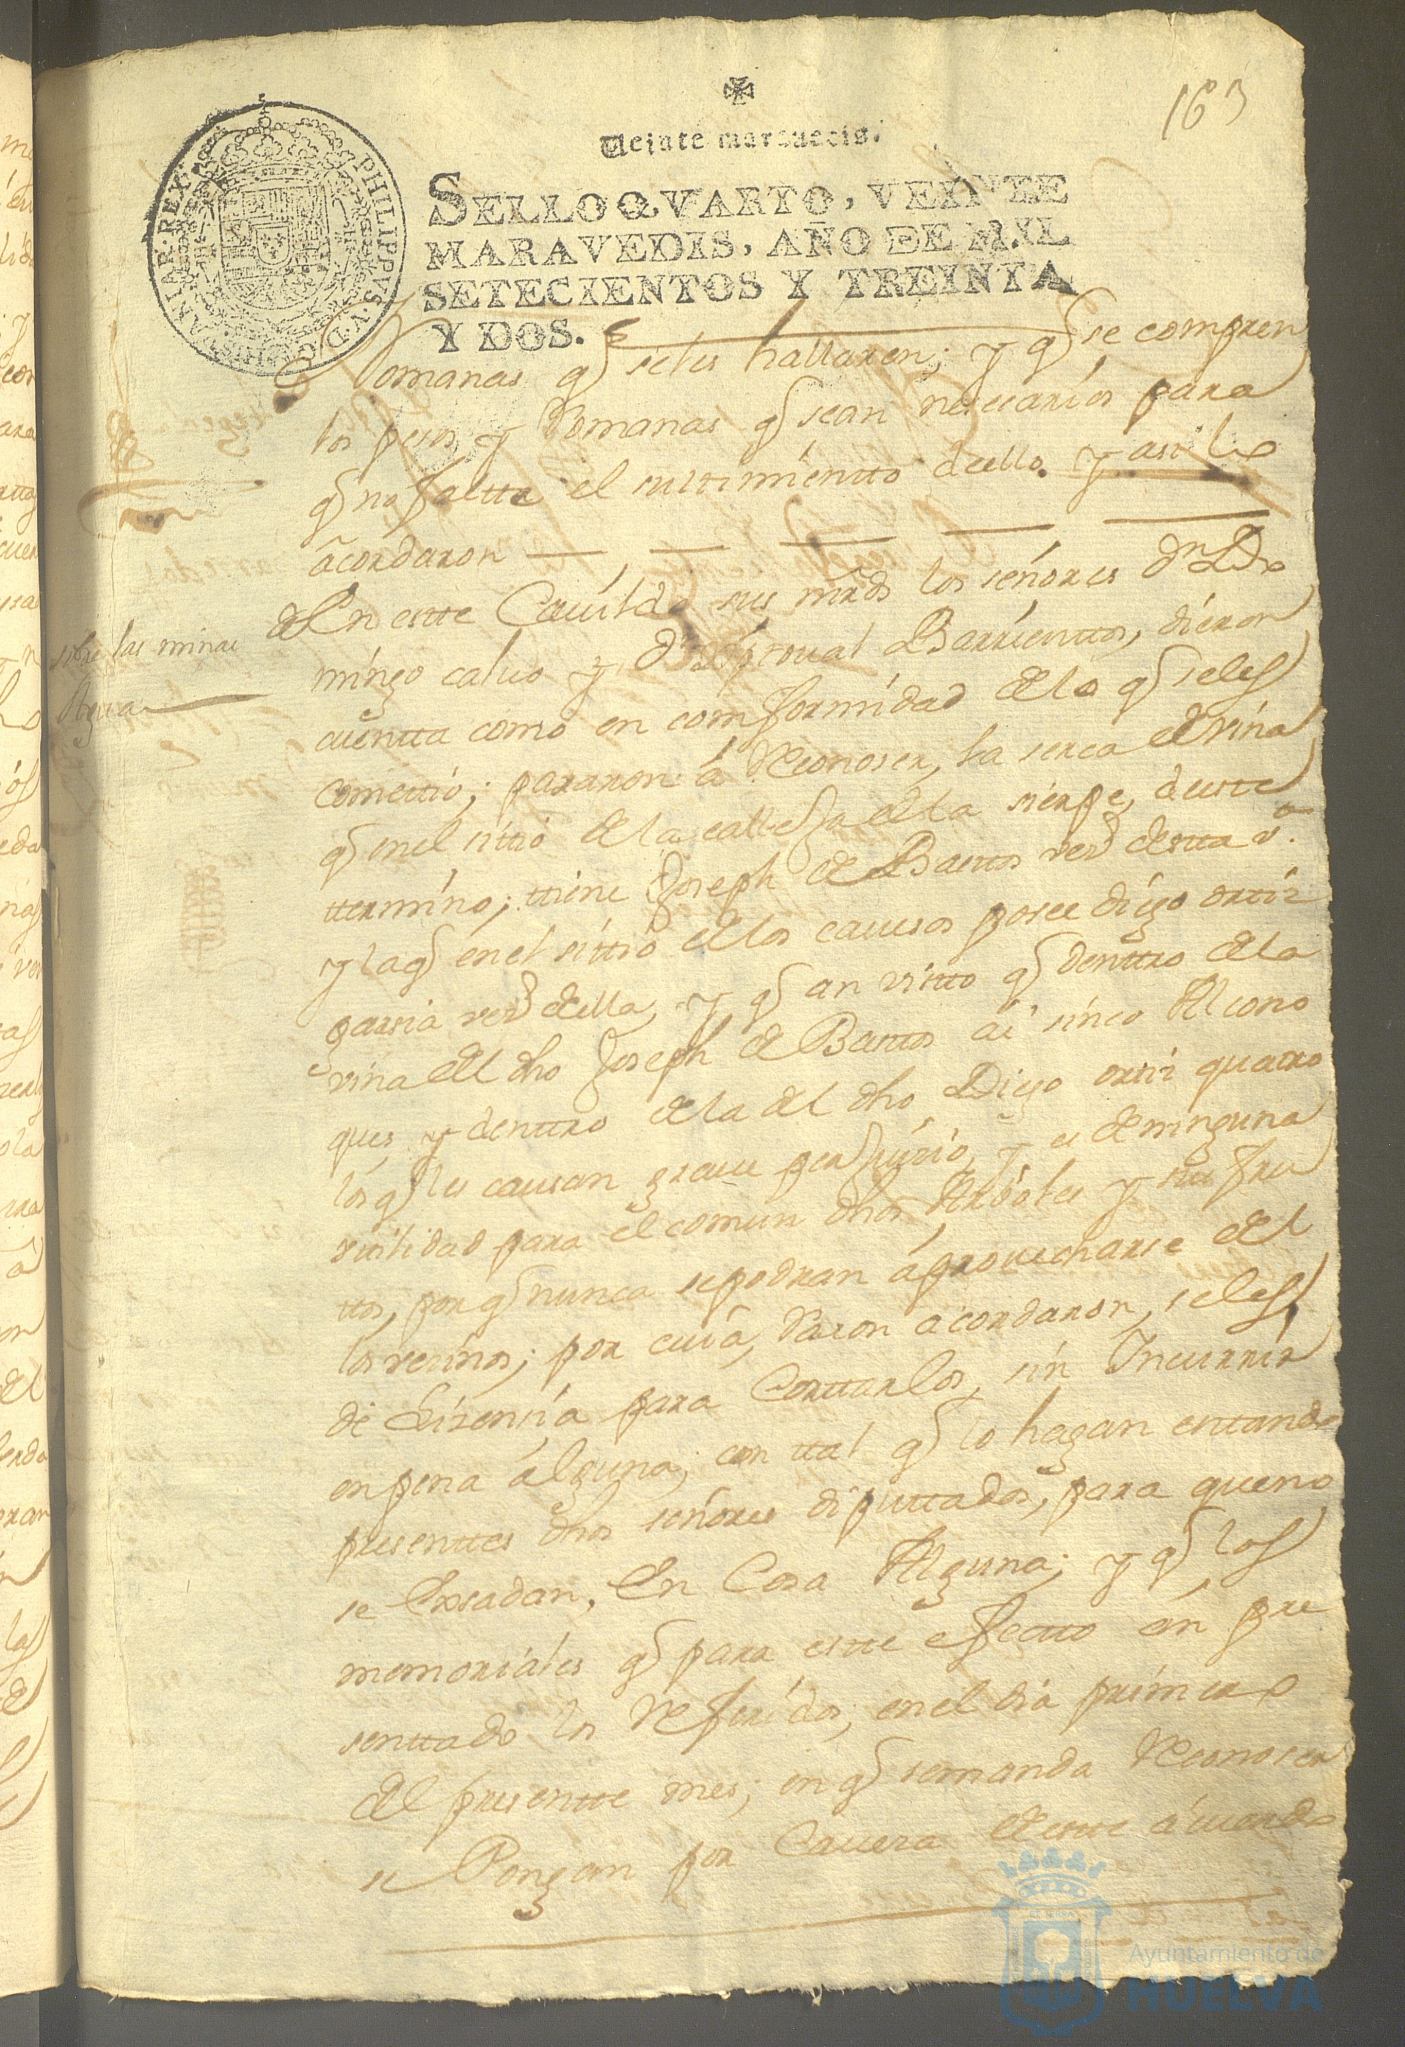 163
Veinte maravedis.
SELLO QVARTO, VEINTE
MARAVEDIS, AÑO DE MIL
SETECIENTOS Y TREINTA
Y DOS.
PHILIPPVS·V·D·G·HISPANIAR·REX·
Romanas q̃ seles hallaren; y q̃ se compren
los pesos y Romanas q̃ sean nesesarios para
q̃ no faltte el surtimientto deello. y asi lo
acordaron
sobre las minas
Agua
En estte Cauildo sus mrds los señores Dn Do
mingo calvo y Dn Xptoual Barrienttos, dieron
cuentta como en comformidad de lo q̃ seles
comettió; pasaron á Reconoser, la serca de viña
q̃ en el sittio de la cavesa de la sierpe, deeste
ttermino; ttiene Joseph de Bastos vesº destta vª.
y la q̃ en el sittio de los posee diego orttiz
garsia vesº della, y q̃ an visto q̃ denttro de la
viña del dho Joseph de Bastos ai sinco Alcorno
ques, y denttro de la del dho Diego orttiz quatro
los q̃ les causan graue perjuisio, y es de ninguna
vttilidad para el comun dhos Arboles y sus fru
ttos, por q̃ nunca se podran áprouecharse del
los vesinos; por cuia, Rason acordaron, seles
de Lisensia para Corttarlos, sin Incurrir
en pena álguna; con ttal q̃ lo hagan estando
presenttes dhos señores diputtados, para que no
se Exsedan, En Cosa Alguna; y q̃ los
memoriales q̃ para estte efectto án pre
senttado los Referidos, en el dia primero
del presentte mes; en q̃ se manda Reconoser
se Pongan por Cauesa de estte ácuerdo
Ayuntamiento de
HUELVA